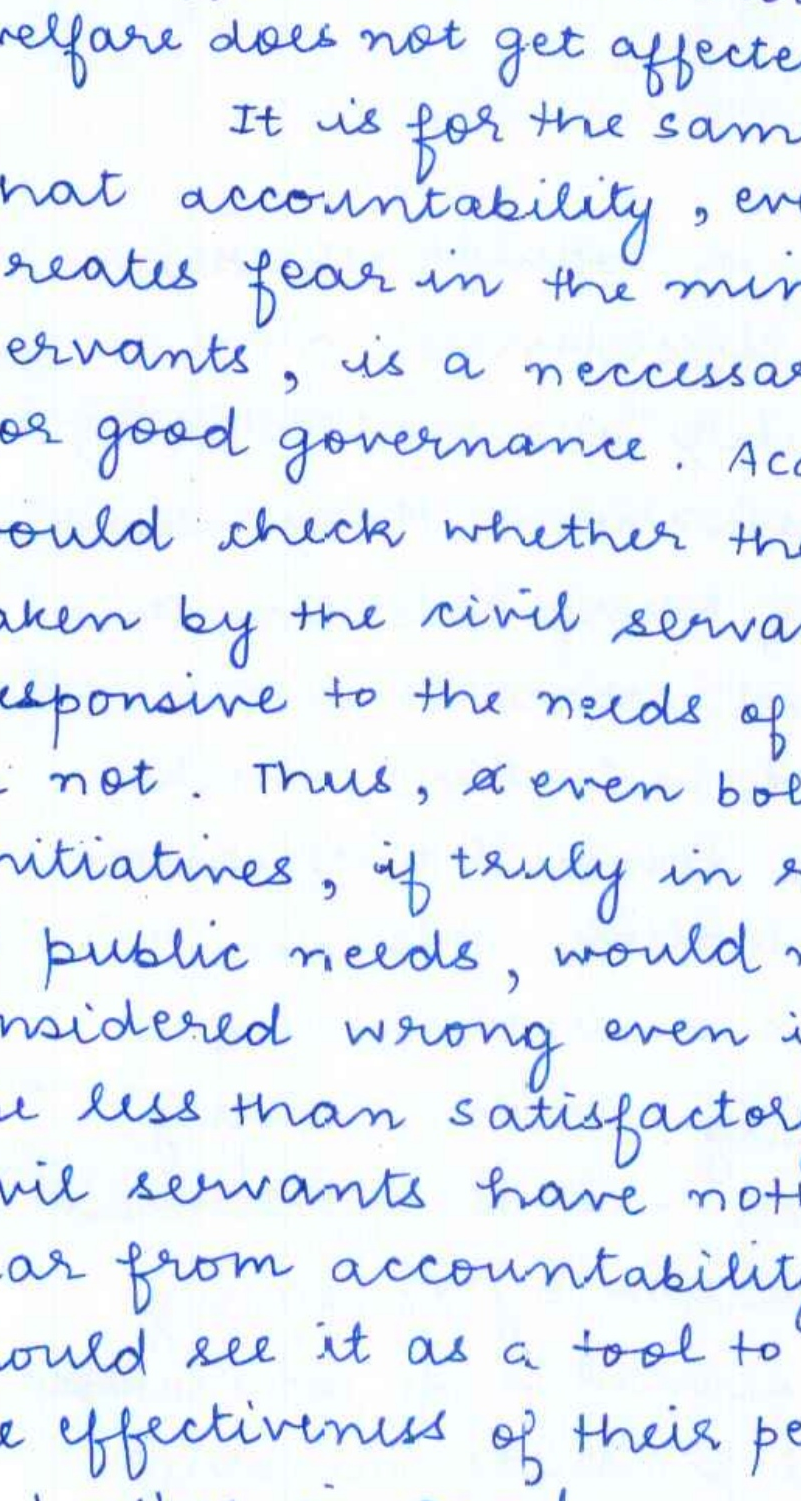 welfare does not get affecte
It is for the sam
hat accountability, eve
reates fear in the min
ervants, is a neccessar
or good governance. Acc
ould check whether the
aken by the civil serva
esponsive to the needs of
not. Thus, even bol
nitiatives, if truly in r
public needs, would n
nsidered wrong even i
e less than satisfactory
vil servants have noth
ar from accountability
ould see it as a tool to
e effectiveness of their pe